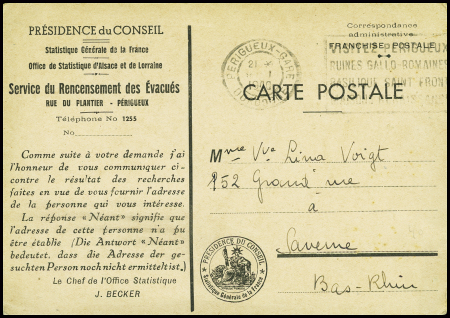 PRÉSIDENCE DU CONSEIL
Statistique Générale de la France
Office de Statistique d'Alsace et de Lorraine
Service du Rencensement des Évacués
RUE DU PLANTIER - PÉRIGUEUX
Téléphone No 1255
No
Comme suite à votre demande j'ai
l'honneur de vous communiquer ci-
contre le résultat des recherches
faites en vue de vous fournir l'adresse
de la personne qui vous intéresse.
La réponse «Néant» signifie que
l'adresse de cette personne n'a pu
être établie (Die Antwort «Néant»
bedeutet, dass die Adresse der ge-
suchten Person noch nicht ermittelt ist.)
Le Chef de l'Office Statistique
J. BECKER
Correspondance
administrative
FRANCHISE POSTALE
PERIGUEUX-GARE
VISITEZ PERIGUEUX
RUINES GALLO-ROMAINES
BASILIQUE SAINT FRONT
CARTE POSTALE
Mme Vve Lina Voigt
152 Grand'rue
à
Saverne
Bas-Rhin
PRÉSIDENCE DU CONSEIL
Statistique Générale de la France